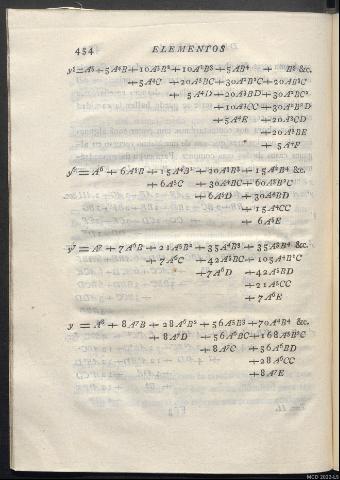 454 ELEMENTOS
y⁵=A⁵+5A⁴B+10A³B²+10A²B³+5AB⁴ + B⁵ &c.
+5A⁴C +20A³BC+30A²B²C+20AB³C
+ 5A⁴D+20A³BD+30A²BC²
+10A³CC+30A²B²D
+5A⁴E +20A³CD
+20A³BE
+ 5A⁴F
y⁶= A⁶ +6A⁵B +15A⁴B² +20A³B³ +15A²B⁴ &c.
+6A⁵C +30A⁴BC+60A³B²C
+6A⁵D +30A⁴BD
+15A⁴CC
+ 6A⁵E
y⁷= A⁷ +7A⁶B +21A⁵B² +35A⁴B³ +35A³B⁴ &c.
+7A⁶C +42A⁵BC+105A⁴B²C
+7A⁶D +42A⁵BD
+21A⁵CC
+7A⁶E
y = A⁸ +8A⁷B +28A⁶B² +56A⁵B³ +70A⁴B⁴ &c.
+8A⁷D +56A⁶BC+168A⁵B²C
+8A⁷C +56A⁶BD
+28A⁶CC
+8A⁷E